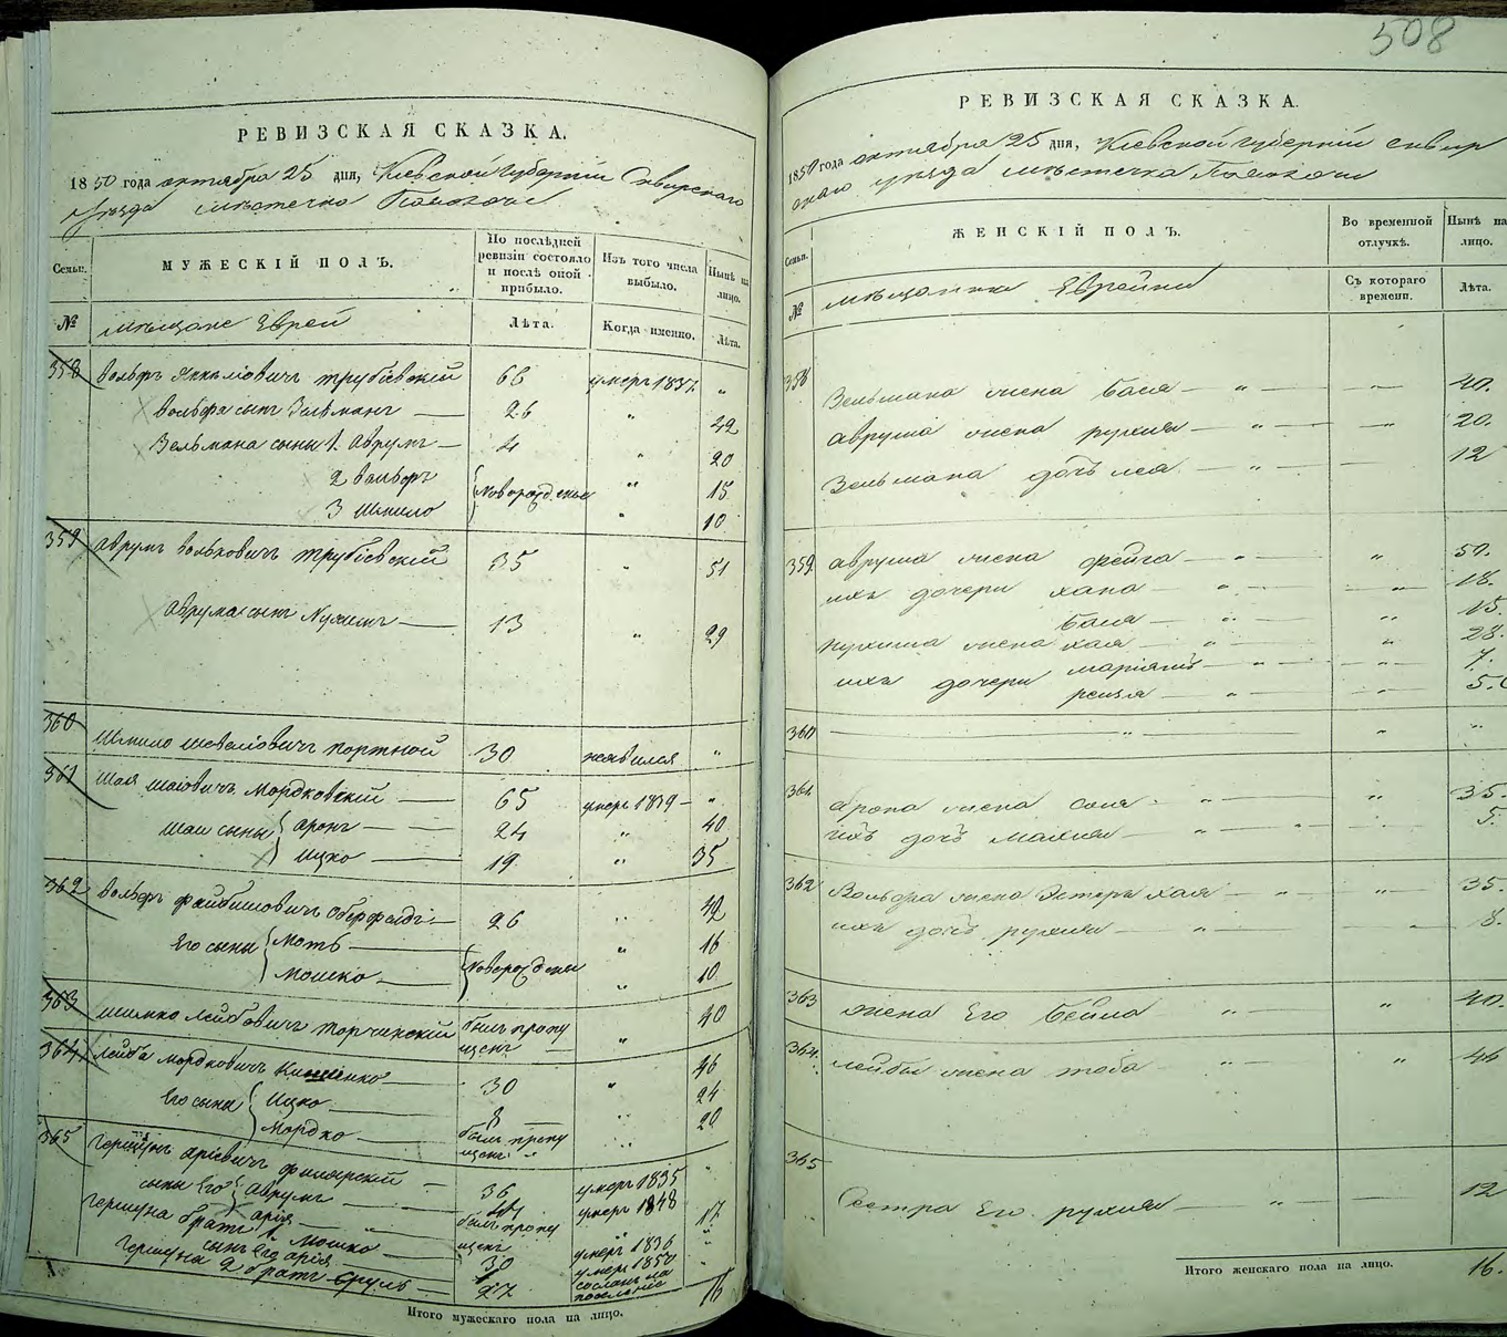 508
РЕВИЗСКАЯ СКАЗКА.
1850 года октября 25 дня, Кіевской Губерніи Сквирскаго
уезда местечка
Семьи. МУЖЕСКІЙ ПОЛЪ. По послѣдней ревизіи состояло и послѣ оной прибыло. Изъ того числа выбыло. Нынѣ на лицо.
№ мещане Евреи Лѣта. Когда именно. Лѣта.
358 Вольфъ трубіевскій 66 умеръ 1837 "
Вольфа сынъ Зельманъ 26 " 42
Зельмана сыны 1. Аврумъ 4 " 20
2 Вольфъ новорожденые " 15
3 Шмило " 10
359 Аврумъ Вольковичъ Трубіевскій 35 " 51
Аврума сынъ Нухимъ 13 " 29
360 Шмило портной 30 неявился "
361 Шая Мордковскій 65 умеръ 1839 "
Шаи сыны Аронъ 24 " 40
Ицко 19 " 35
362 Вольфъ файбишовичъ 26 " 42
Его сыны Моть " 16
Мошко новорождены " 10
363 шимко Лейбовичъ Торчинскій былъ пропущенъ " 40
364 Лейба Мордковичъ 30 " 46
Его сыны Ицко 8 " 24
Мордко былъ пропущенъ " 20
365 Аріевичъ 36 умеръ 1835 "
сыны его Аврумъ умеръ 1848
Арія былъ пропущенъ 17
братъ 1 Мошко 30 умеръ 1836 "
сынъ его Арія умеръ 1850
2 братъ Сруль 27 сосланъ на поселеніе
16
Итого мужескаго пола на лицо.
РЕВИЗСКАЯ СКАЗКА.
1850 года октября 25 дня, Кіевской Губерніи Сквирскаго уезда местечка
Семьи. ЖЕНСКІЙ ПОЛЪ. Во временной отлучкѣ. Нынѣ на лицо.
№ мещанки Еврейки Съ котораго времени. Лѣта.
358 Зельмана жена Бася " " 40.
Аврума жена рухля " " 20.
Зельмана дочь лея " 12
359 Аврума жена фейга " " 50.
ихъ дочери хана " " 18.
Бася " " 15.
Нухима жена хая " " 28.
ихъ дочери " " 7.
" " 5.
360 " " "
361 Арона жена " " 35.
ихъ дочь малка " " 5.
362 Вольфа жена Эстеръ хая " " 35.
ихъ дочь рухля " " 8.
363 жена Его Бейла " " 40.
364. Лейбы жена тоба " " 46
365 Сестра Его рухля " 12
Итого женскаго пола на лицо. 16.